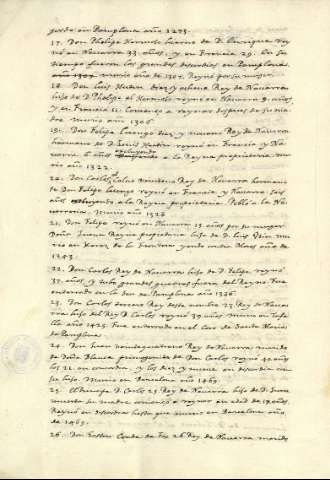 jurado en Pamplona año 1273.
17. Don Phelipe Hermoso Yerno de D. Henrique Rey
no en Navarra 33 años, y en Francia 29. En su
tiempo fueron los grandes en Pamplona
año 1304 murio año de 1305. Reyno por su muger.
18. Don Luis Hutin diez y ocheno Rey de Navarra
hijo de D. Phelipe el Hermoso reyno en Navarra 9. años,
y en Francia 11. Comenzo a reynar despues de su Ma
dre murio año 1306
19. Don Felipe Luengo diez y noveno Rey de Navarra
hermano de D. Luis Hutin reyno en Francia y Na
varra 6 años excluyendo a la Reyna propietaria. mu
rio año 1322.
20. Don Carlos Calvo Rey de Navarra hermano
de Don Felipe Luengo reyno en Francia y Navarra seis
años excluyendo a la Reyna propietaria. Poblo a la Na
varreria. Murio año 1328
21. Don Felipe reyno en Navarra 15 años por su muger
Doña Juana Reyna propietaria hija de D. Luis Utin mu
rio en Xerez de la frontera yendo contra Moros año de
1343.
22. Don Carlos Rey de Navarra hijo de D. Felipe, reyno
37. años, y tubo grandes guerras fuera del Reyno. Fue
enterrado en la Seo de Pamplona año 1386
23. Don Carlos tercero deste nombre 23 Rey de Navar
ra hijo del Rey D. Carlos reyno 39 años murio en Tafa
lla año 1425. Fue enterrado en el Coro de Santa Maria
de Pamplona.
24. Don Juan Rey de Navarra marido
de Doña Blanca primogenita de Don Carlos reyno 40 años
los 21 en concordia, y los diez y nueve en discordia con
su hijo. Murio en Barcelona año 1469.
25. El Principe D. Carlos 25 Rey de Navarra hijo de D. Juan
muerta su madre comenzo a reynar en edad de 19 años.
Reyno en discordia hasta que murio en Barcelona año
de 1469.
26. Don Gaston Conde de Fox 26 Rey de Navarra marido